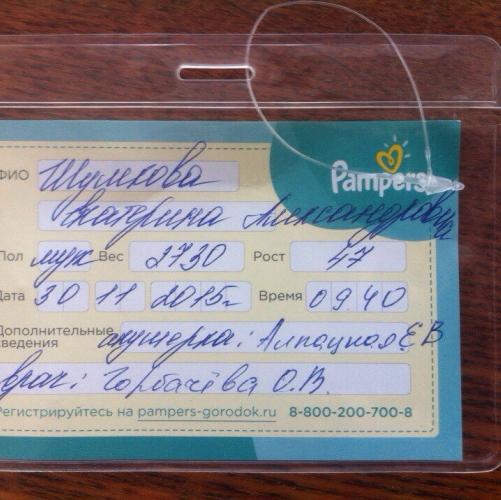 Pampers
ФИО Шумкова
Екатерина Александровна
Пол муж Вес 2730 Рост 47
Дата 30 11 2015г Время 09.40
Дополнительные сведения акушерка: Алпацкая Е В
врач: Горбачёва О.В.
Регистрируйтесь на pampers-gorodok.ru 8-800-200-700-8